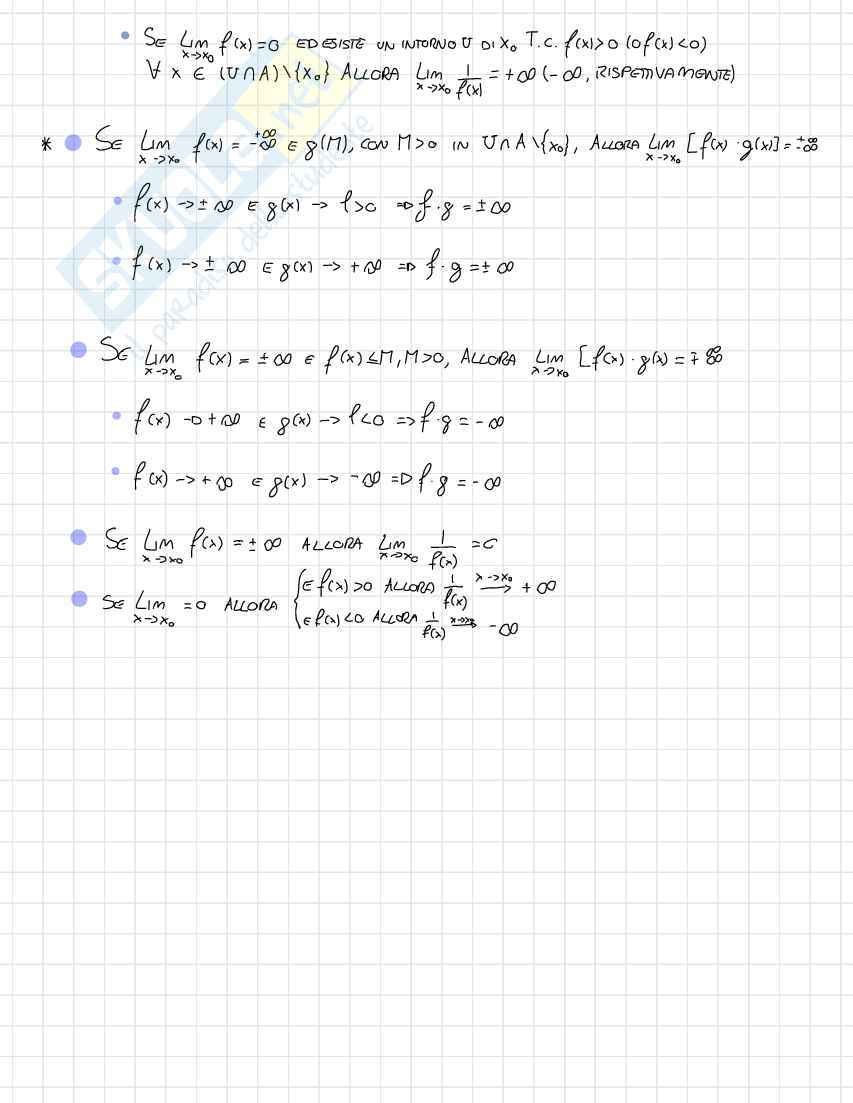 • SE LIM x→x₀ f(x)=0 ED ESISTE UN INTORNO U DI X₀ T.C. f(x)>0 (O f(x)<0)
∀ x ∈ (U∩A)\{x₀} ALLORA LIM x→x₀ 1/f(x) = +∞ (-∞, RISPETTIVAMENTE)
* ● SE LIM x→x₀ f(x) = ±∞ E g(M), CON M>0 IN U∩A\{x₀}, ALLORA LIM x→x₀ [f(x)·g(x)] = ±∞
• f(x) → ±∞ E g(x) → l>0 ⇒ f·g = ±∞
• f(x) → ±∞ E g(x) → +∞ ⇒ f·g = ±∞
● SE LIM x→x₀ f(x) = ±∞ E f(x) ≤ M, M>0, ALLORA LIM x→x₀ [f(x)·g(x) = ∓∞
• f(x) → +∞ E g(x) → l<0 ⇒ f·g = -∞
• f(x) → +∞ E g(x) → -∞ ⇒ f·g = -∞
● SE LIM x→x₀ f(x) = ±∞ ALLORA LIM x→x₀ 1/f(x) = 0
● SE LIM x→x₀ = 0 ALLORA { E f(x)>0 ALLORA 1/f(x) x→x₀ → +∞
E f(x)<0 ALLORA 1/f(x) x→x₀ → -∞
SKUOLA.net
il paradiso dello studente